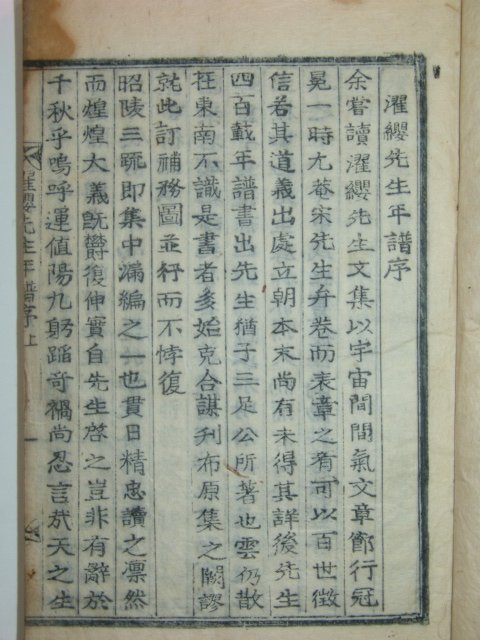 濯纓先生年譜序
余嘗讀濯纓先生文集以宇宙間間氣文章節行冠
冕一時尤菴宋先生弁卷而表章之有可以百世徵
信若其道義出處立朝本末尚有未得其詳後先生
四百載年譜書出先生猶子三足公所著也雲仍散
在東南不識是書者多始克合謀刋布原集之闕謬
就此訂補務圖並行而不悖復
昭陵三䟽即集中漏編之一也貫日精忠讀之凛然
而煌煌大義旣欝復伸實自先生啓之豈非有辭於
千秋乎嗚呼運值陽九躬蹈奇禍尚忍言㢤天之生
濯纓先生年譜序上
一